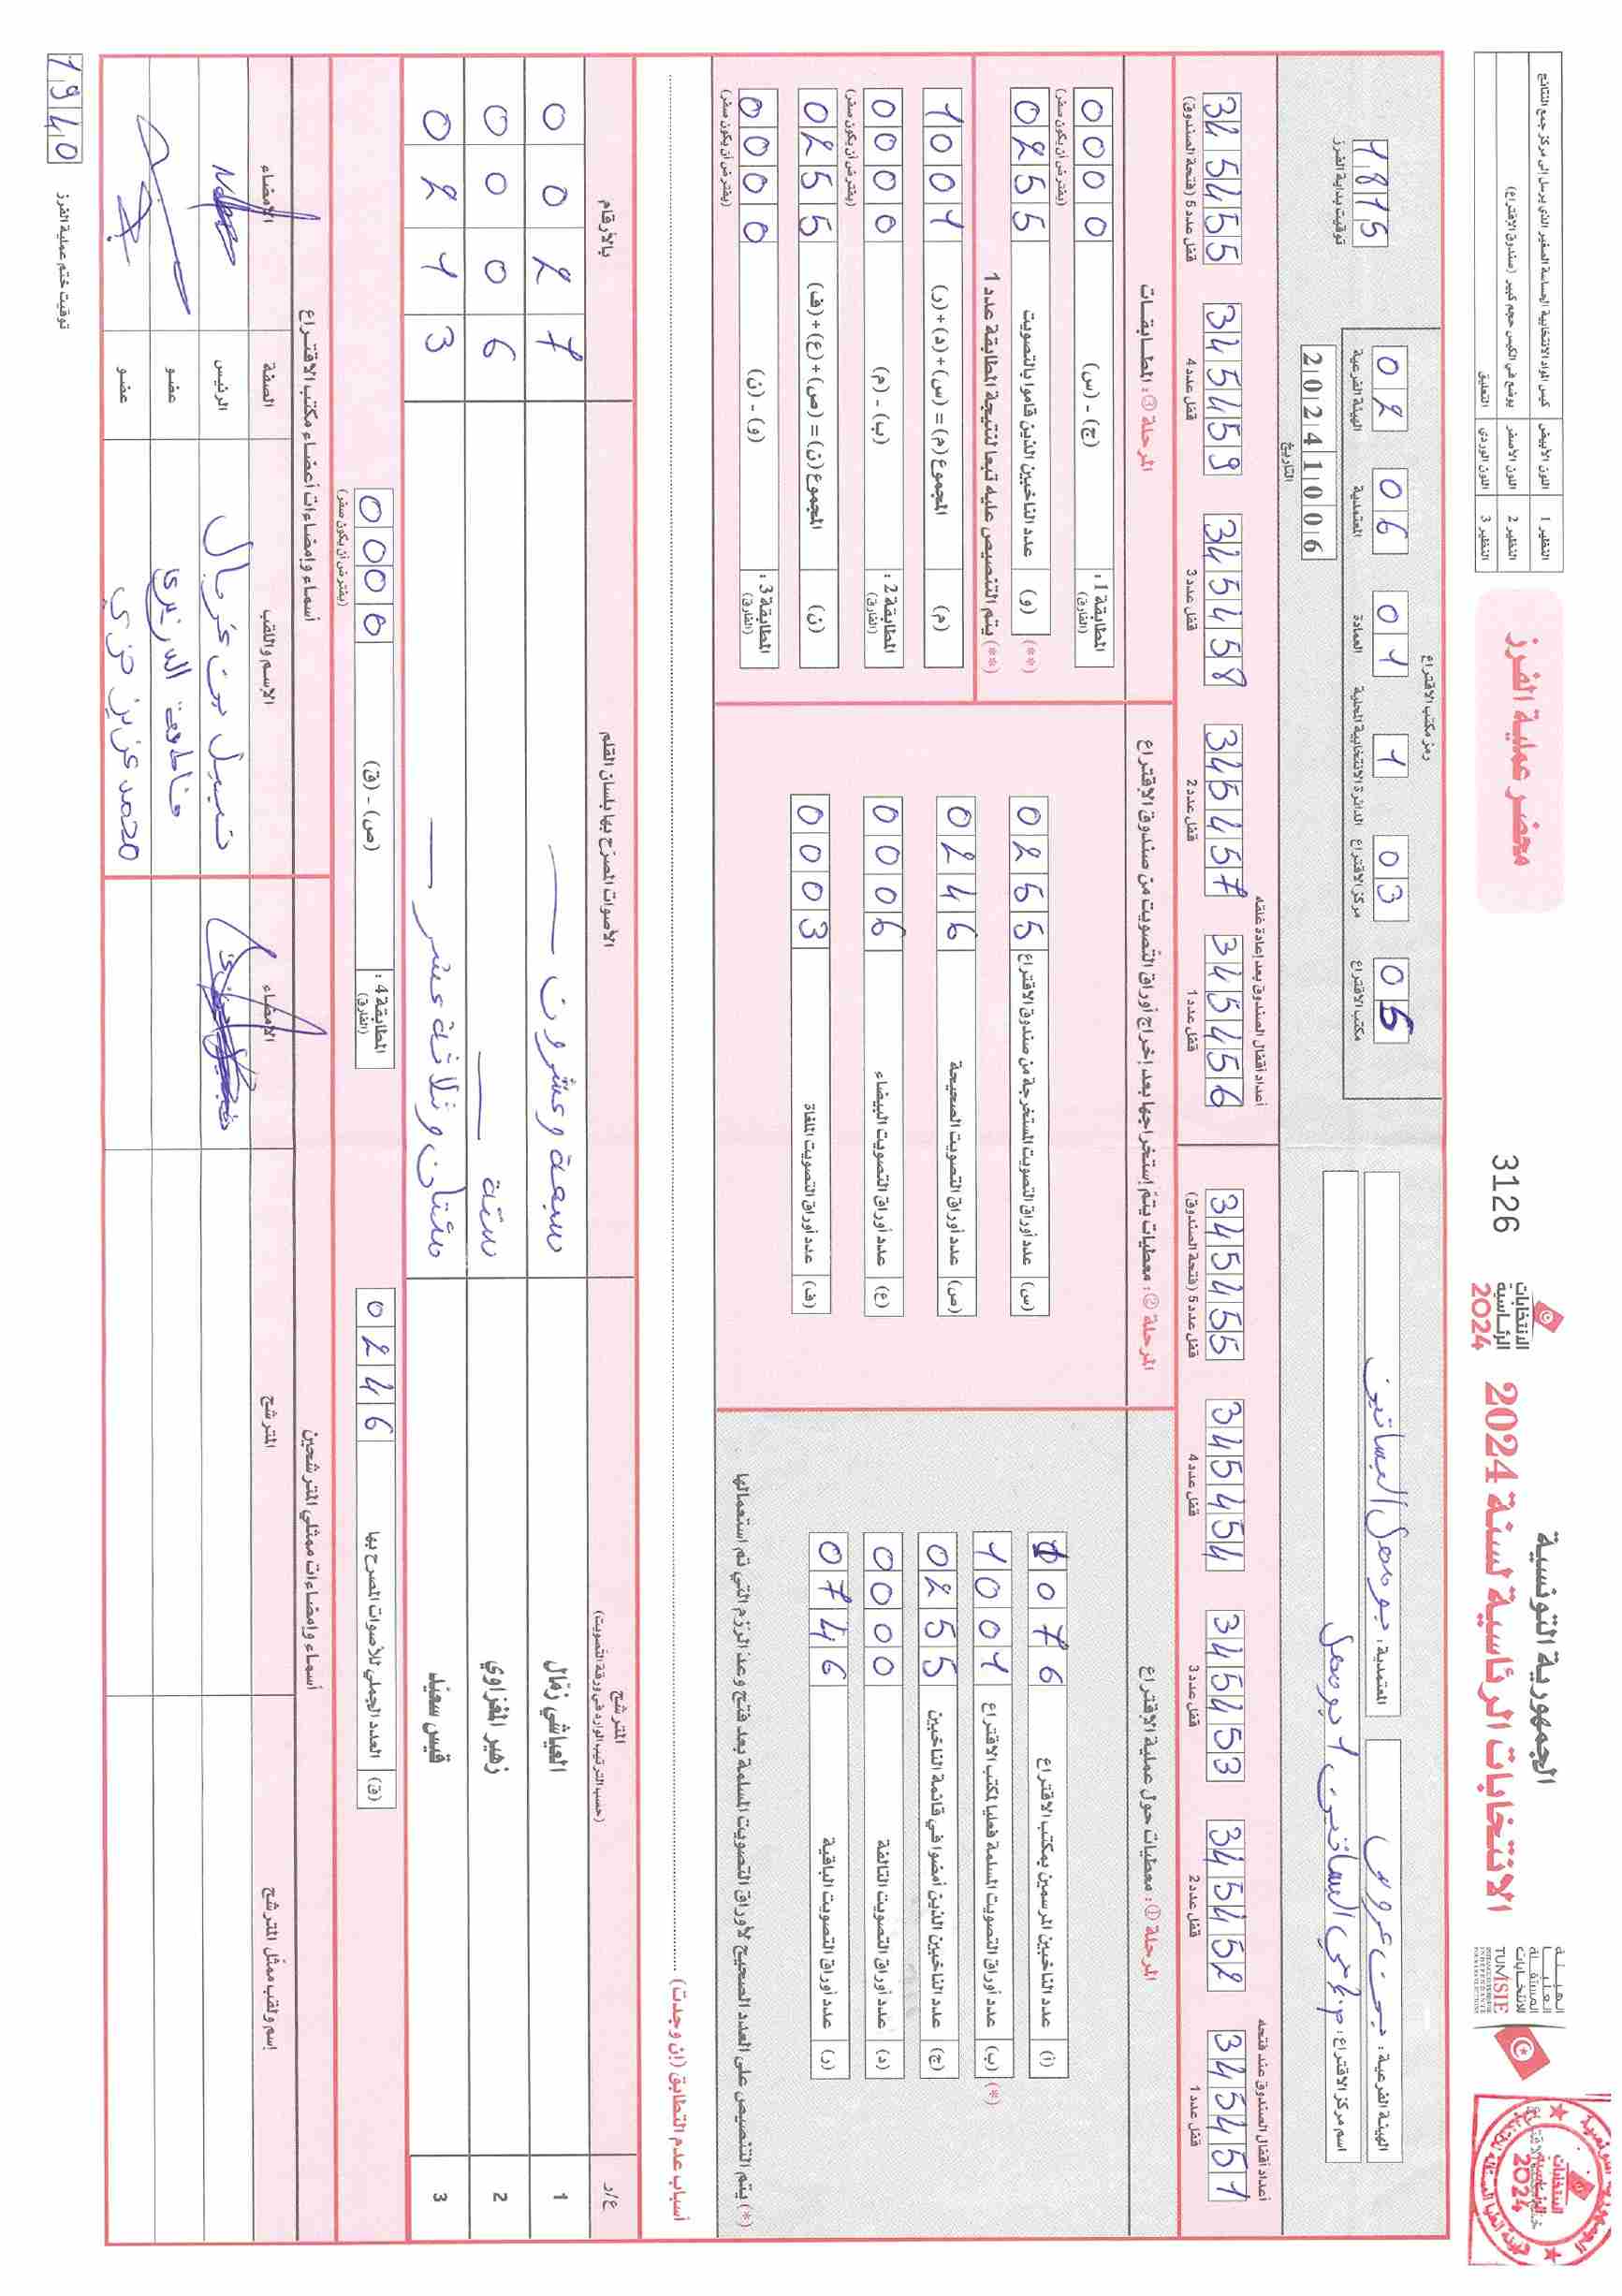 الجمهورية التونسية
الانتخابات الرئاسية لسنة 2024
الانتخابات
الرئاسية
2024
3126
محضر عملية الفرز
النظير 1 اللون الأبيض كيس المواد الانتخابية الحساسة الصغير الذي يرسل إلى مركز جمع النتائج
النظير 2 اللون الأصفر يوضع في الكيس حجم كبير (صندوق الاقتراع)
النظير 3 اللون الوردي التعليق
الهيئة
العليا
المستقلة
للانتخابات
TUNISIE
الهيئة الفرعية : بن عروس
المعتمدية : بومهل البساتين
اسم مركز الاقتراع :
رمز مكتب الاقتراع
02 06 01 1 03 05
الهيئة الفرعية المعتمدية العمادة الدائرة الانتخابية المحلية مركز الاقتراع مكتب الاقتراع
20241006
التاريخ
1815
توقيت بداية الفرز
أعداد أقفال الصندوق عند فتحه
345451 345452 345453 345454 345455
قفل عدد 1 قفل عدد 2 قفل عدد 3 قفل عدد 4 قفل عدد 5 (فتحة الصندوق)
أعداد أقفال الصندوق بعد إعادة غلقه
345456 345457 345458 345459 345455
قفل عدد 1 قفل عدد 2 قفل عدد 3 قفل عدد 4 قفل عدد 5 (فتحة الصندوق)
المرحلة ① : معطيات حول عملية الاقتراع
(أ) عدد الناخبين المرسمين بمكتب الاقتراع 1076
(ب) (*) عدد أوراق التصويت المسلمة فعليا لمكتب الاقتراع 1001
(ج) عدد الناخبين الذين أمضوا في قائمة الناخبين 0255
(د) عدد أوراق التصويت التالفة 0000
(ر) عدد أوراق التصويت الباقية 0746
(*) يتم التنصيص على العدد الصحيح لأوراق التصويت المسلمة بعد فتح وعد الرزم التي تم استعمالها
المرحلة ② : معطيات يتم إستخراجها بعد إخراج أوراق التصويت من صندوق الاقتراع
(س) عدد أوراق التصويت المستخرجة من صندوق الاقتراع 0255
(ص) عدد أوراق التصويت الصحيحة 0246
(ع) عدد أوراق التصويت البيضاء 0006
(ف) عدد أوراق التصويت الملغاة 0003
المرحلة ③ : المطابقات
المطابقة 1 : (الفارق) (ج) - (س) 0000
(يفترض أن يكون صفر)
(**) (و) عدد الناخبين الذين قاموا بالتصويت 0255
(**) يتم التنصيص عليه تبعا لنتيجة المطابقة عدد 1
(م) المجموع (م) = (س) + (د) + (ر) 1001
المطابقة 2 : (الفارق) (ب) - (م) 0000
(يفترض أن يكون صفر)
(ن) المجموع (ن) = (ص) + (ع) + (ف) 0255
المطابقة 3 : (الفارق) (و) - (ن) 0000
(يفترض أن يكون صفر)
أسباب عدم التطابق (إن وجدت)
ع/ر المترشح (حسب الترتيب الوارد في ورقة التصويت) الأصوات المصرّح بها بلسان القلم بالأرقام
1 العياشي زمّال سبعة وعشرون 0027
2 زهير المغزاوي ستة 0006
3 قيس سعيّد مئتان وثلاثة عشر 0213
(ق) العدد الجملي للأصوات المصرح بها 0246
المطابقة 4 : (الفارق) (ص) - (ق) 0000
(يفترض أن يكون صفر)
أسماء وإمضاءات ممثلي المترشحين
إسم ولقب ممثّل المترشح المترشح الامضاء
أسماء وإمضاءات أعضاء مكتب الاقتراع
الإسم واللقب الصفة الامضاء
الرئيس
عضو
محمد عزيز عضو
1940
توقيت ختم عملية الفرز